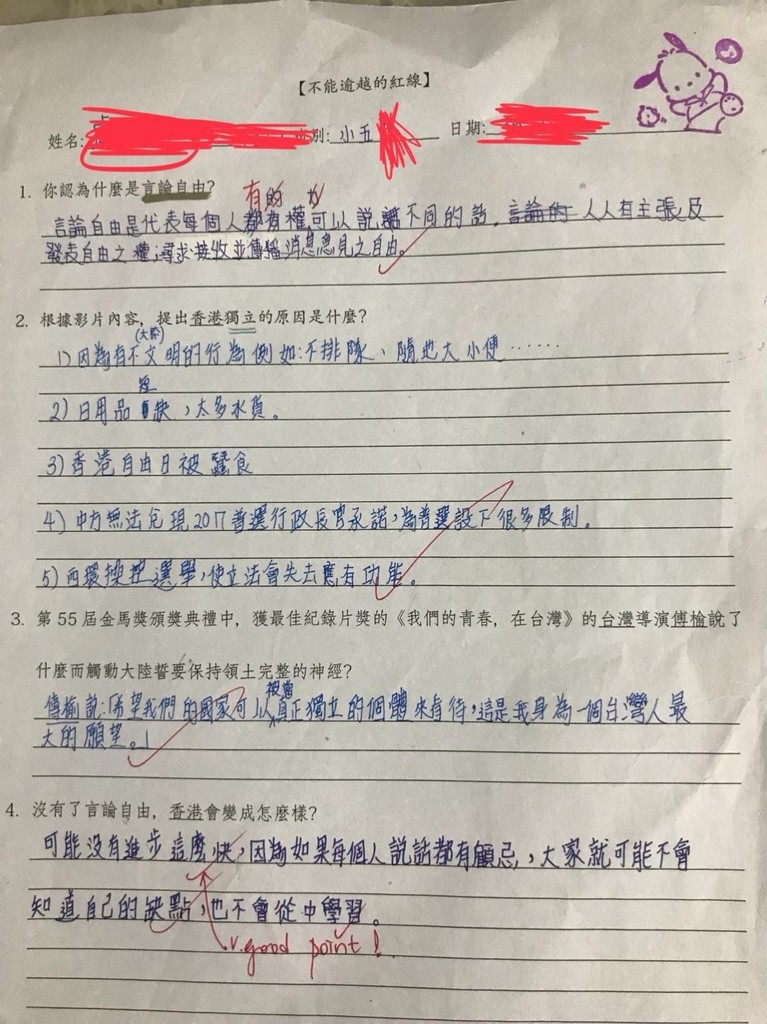 【不能逾越的紅線】
姓名: 別: 小五 日期:
1. 你認為什麼是言論自由?
有的 力
言論自由是代表每個人都有權可以說不同的話。言論的 人人有主張及
發表自由之權;尋求、接收並傳播消息意見之自由。
2. 根據影片內容, 提出香港獨立的原因是什麼?
(大陸)
1) 因為有不文明的行為例如:不排隊、隨地大小便……
短
2) 日用品 缺,太多水貨。
3) 香港自由日被蠶食
4) 中方無法兌現2017普選行政長官承諾,為普選設下很多限制。
5) 西環操控選舉,使立法會失去應有功能。
3. 第 55 屆金馬獎頒獎典禮中, 獲最佳紀錄片獎的《我們的青春, 在台灣》的台灣導演傅榆說了
什麼而觸動大陸誓要保持領土完整的神經?
被當
傅榆說:「希望我們的國家可以真正獨立的個體來看待,這是我身為一個台灣人最
大的願望。」
4. 沒有了言論自由, 香港會變成怎麼樣?
可能沒有進步這麼快,因為如果每個人說話都有顧忌,大家就可能不會
知道自己的缺點,也不會從中學習。
v. good point!